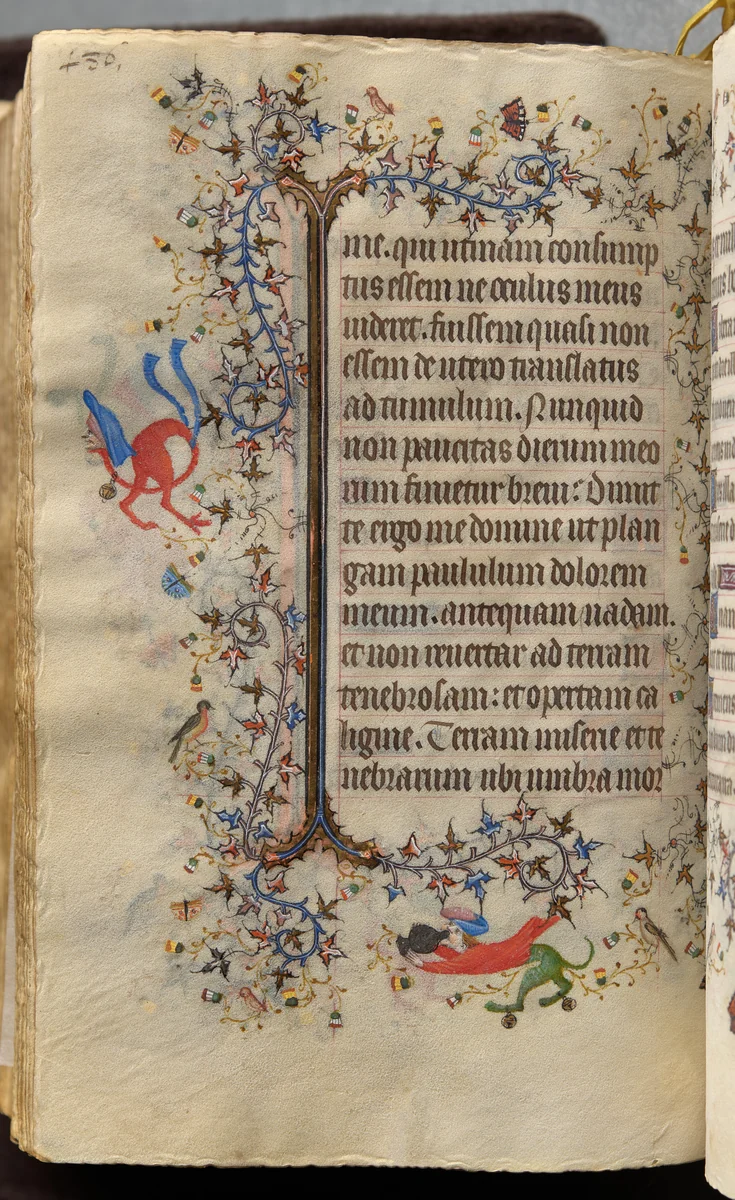 me. qui utinam consump
tus essem ne oculus meus
uideret. fuissem quasi non
essem de utero translatus
ad tumulum. Nunquid
non paucitas dierum meo
rum finietur breui: Dimit
te ergo me domine ut plan
gam paululum dolorem
meum. antequam uadam.
et non reuertar ad terram
tenebrosam: et opertam ca
ligine. Terram miserie et te
nebrarum ubi umbra mor